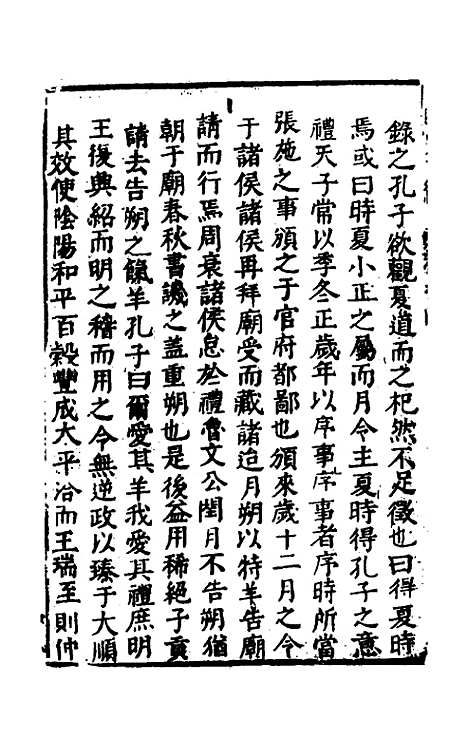 錄之孔子欲觀夏道而之杞然不足徵也曰得夏時
焉或曰時夏小正之屬而月令主夏時得孔子之意
禮天子常以季冬正歲年以序事序事者序時所當
張施之事頒之于官府都鄙也頒來歲十二月之令
于諸侯諸侯再拜廟受而藏諸迨月朔以特羊告廟
請而行焉周衰諸侯怠於禮魯文公閏月不告朔猶
朝于廟春秋書譏之蓋重朔也是後益用稀絕子貢
請去告朔之餼羊孔子曰爾愛其羊我愛其禮庶明
王復興紹而明之稽而用之令無逆政以臻于大順
其效使陰陽和平百穀豐成大平洽而王瑞至則仲